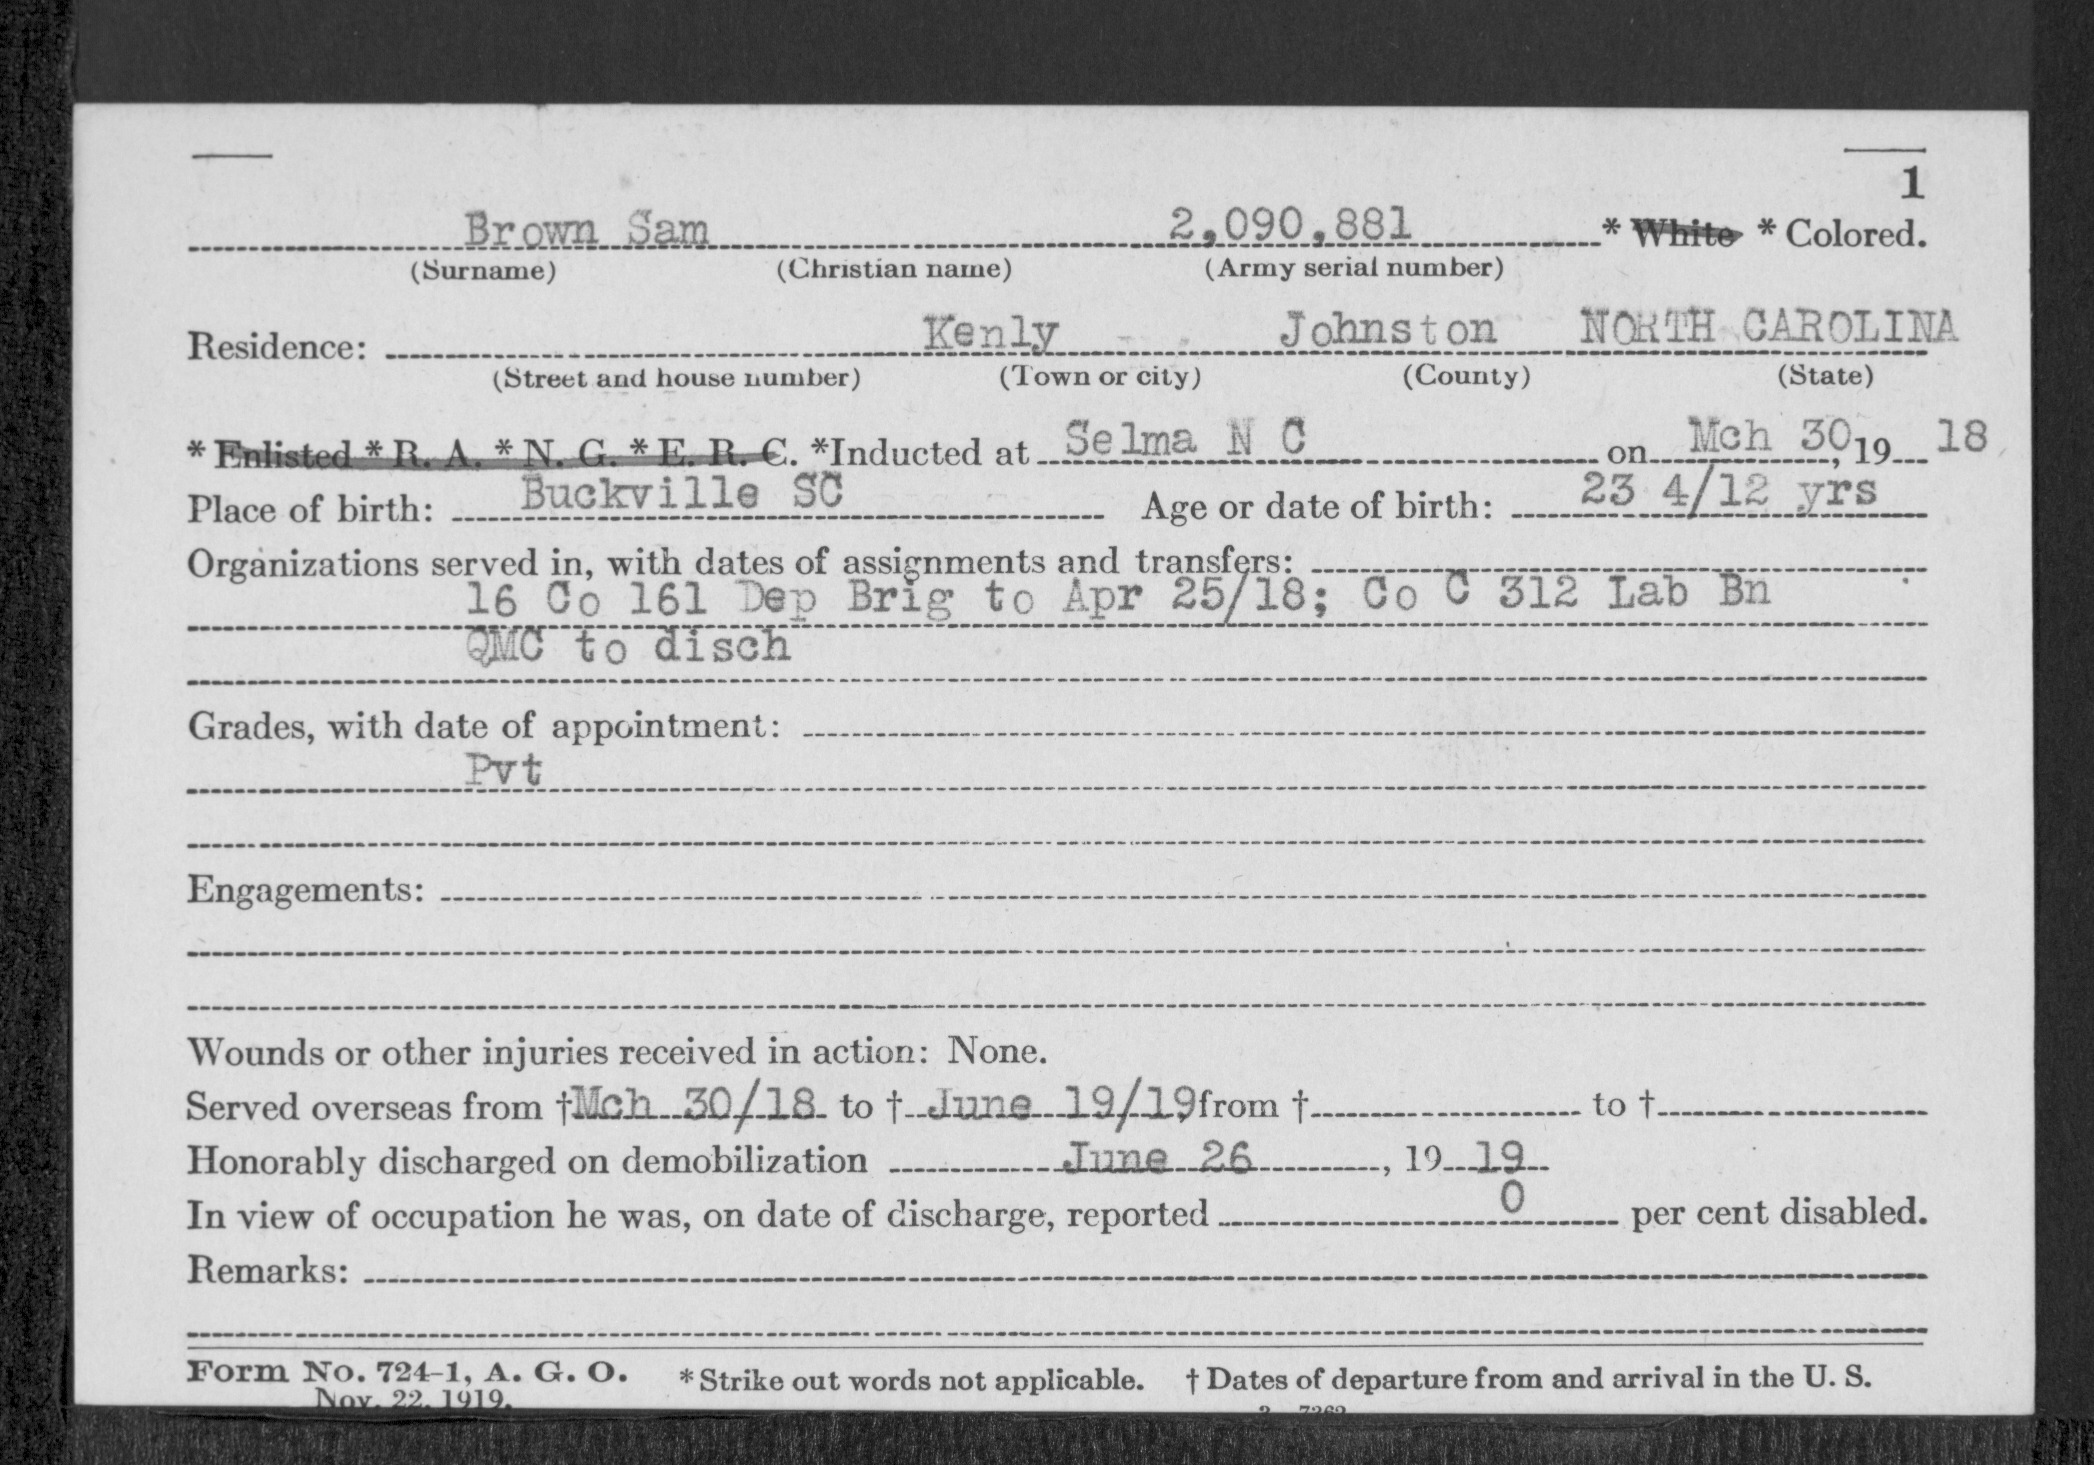 1
Brown Sam 2,090,881 * White * Colored.
(Surname) (Christian name) (Army serial number)
Residence: Kenly Johnston NORTH CAROLINA
(Street and house number) (Town or city) (County) (State)
* Enlisted * R. A. * N. G. * E. R. C. *Inducted at Selma N C on Mch 30, 19 18
Place of birth: Buckville SC Age or date of birth: 23 4/12 yrs
Organizations served in, with dates of assignments and transfers:
16 Co 161 Dep Brig to Apr 25/18; Co C 312 Lab Bn
QMC to disch
Grades, with date of appointment:
Pvt
Engagements:
Wounds or other injuries received in action: None.
Served overseas from †Mch 30/18 to † June 19/19, from † to †
Honorably discharged on demobilization June 26, 19 19
In view of occupation he was, on date of discharge, reported 0 per cent disabled.
Remarks:
Form No. 724-1, A. G. O. * Strike out words not applicable. † Dates of departure from and arrival in the U. S.
Nov. 22, 1919.